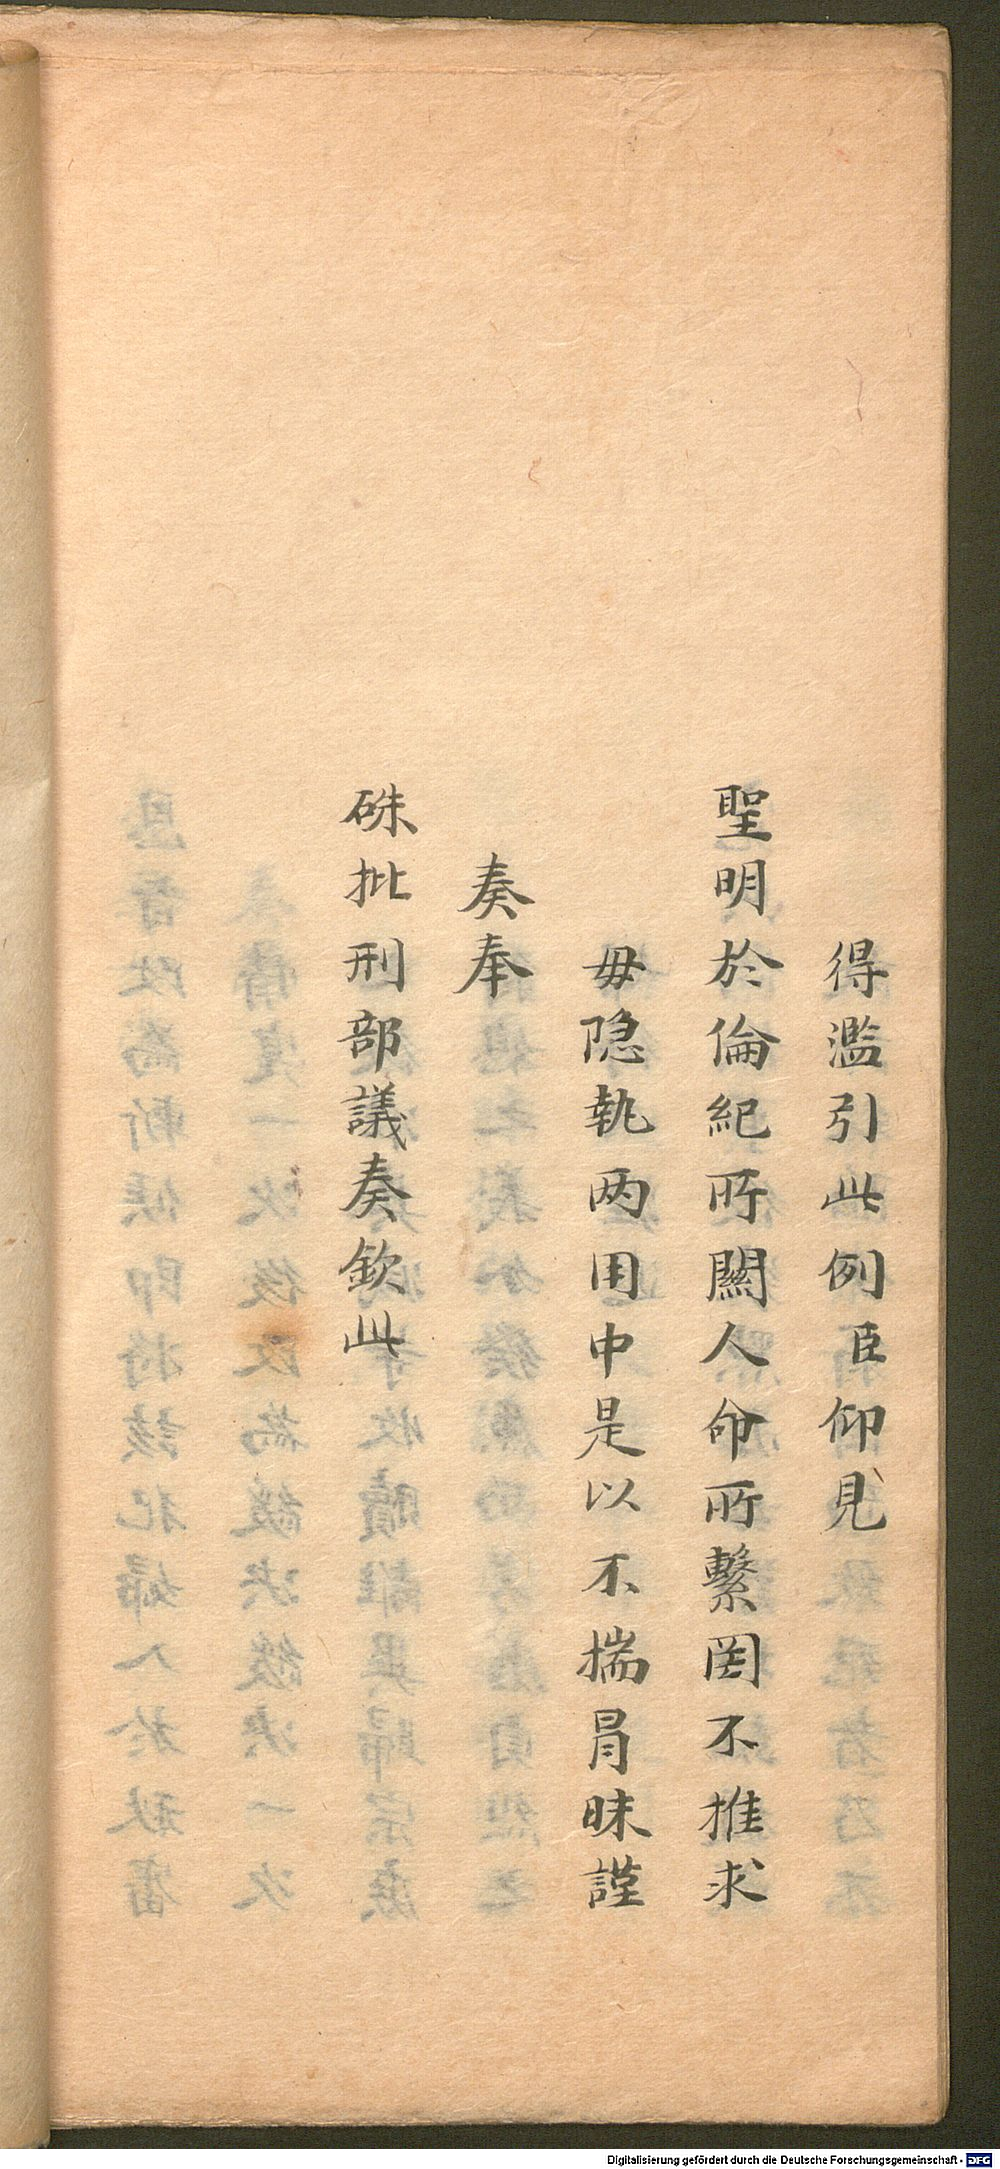 得濫引此例臣仰見
聖明於倫紀所關人命所繫罔不推求
毋隐執两用中是以不揣冒昧謹
奏奉
硃批刑部議奏欽此
Digitalisierung gefördert durch die Deutsche Forschungsgemeinschaft - DFG